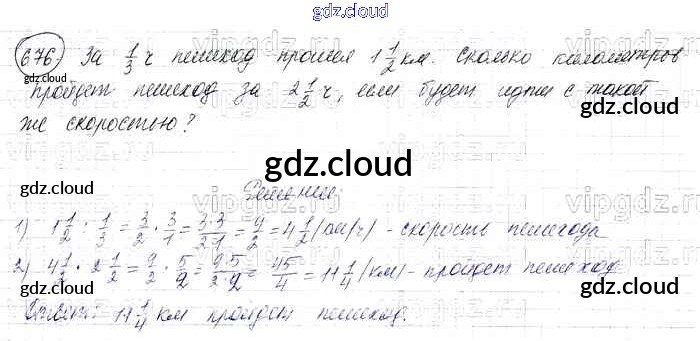 gdz.cloud
676. За 1/3 ч пешеход прошел 1 1/2 км. Сколько километров
gdz.cloud gdz.cloud
пройдет пешеход за 2 1/2 ч, если будет идти с такой
gdz.cloud
же скоростью?
vipgdz
gdz.cloud
gdz.cloud gdz.cloud
Решение:
vipgdz
1) 1 1/2 : 1/3 = 3/2 · 3/1 = 3·3/2·1 = 9/2 = 4 1/2 (км/ч) - скорость пешехода
2) 4 1/2 · 2 1/2 = 9/2 · 5/2 = 9·5/2·2 = 45/4 = 11 1/4 (км) - пройдет пешеход
gdz.cloud gdz.cloud
Ответ: 11 1/4 км пройдет пешеход.
gdz.cloud